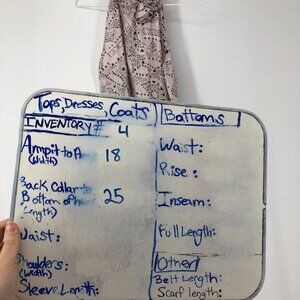 Tops, Dresses, Coats
INVENTORY # 4
Armpit to A
(width)
18
Back Collar to
Bottom of
(Length)
25
Waist:
Shoulders:
(width)
Sleeve Length:
Bottoms
Waist:
Rise:
Inseam:
Full Length:
Other
Belt Length:
Scarf length: